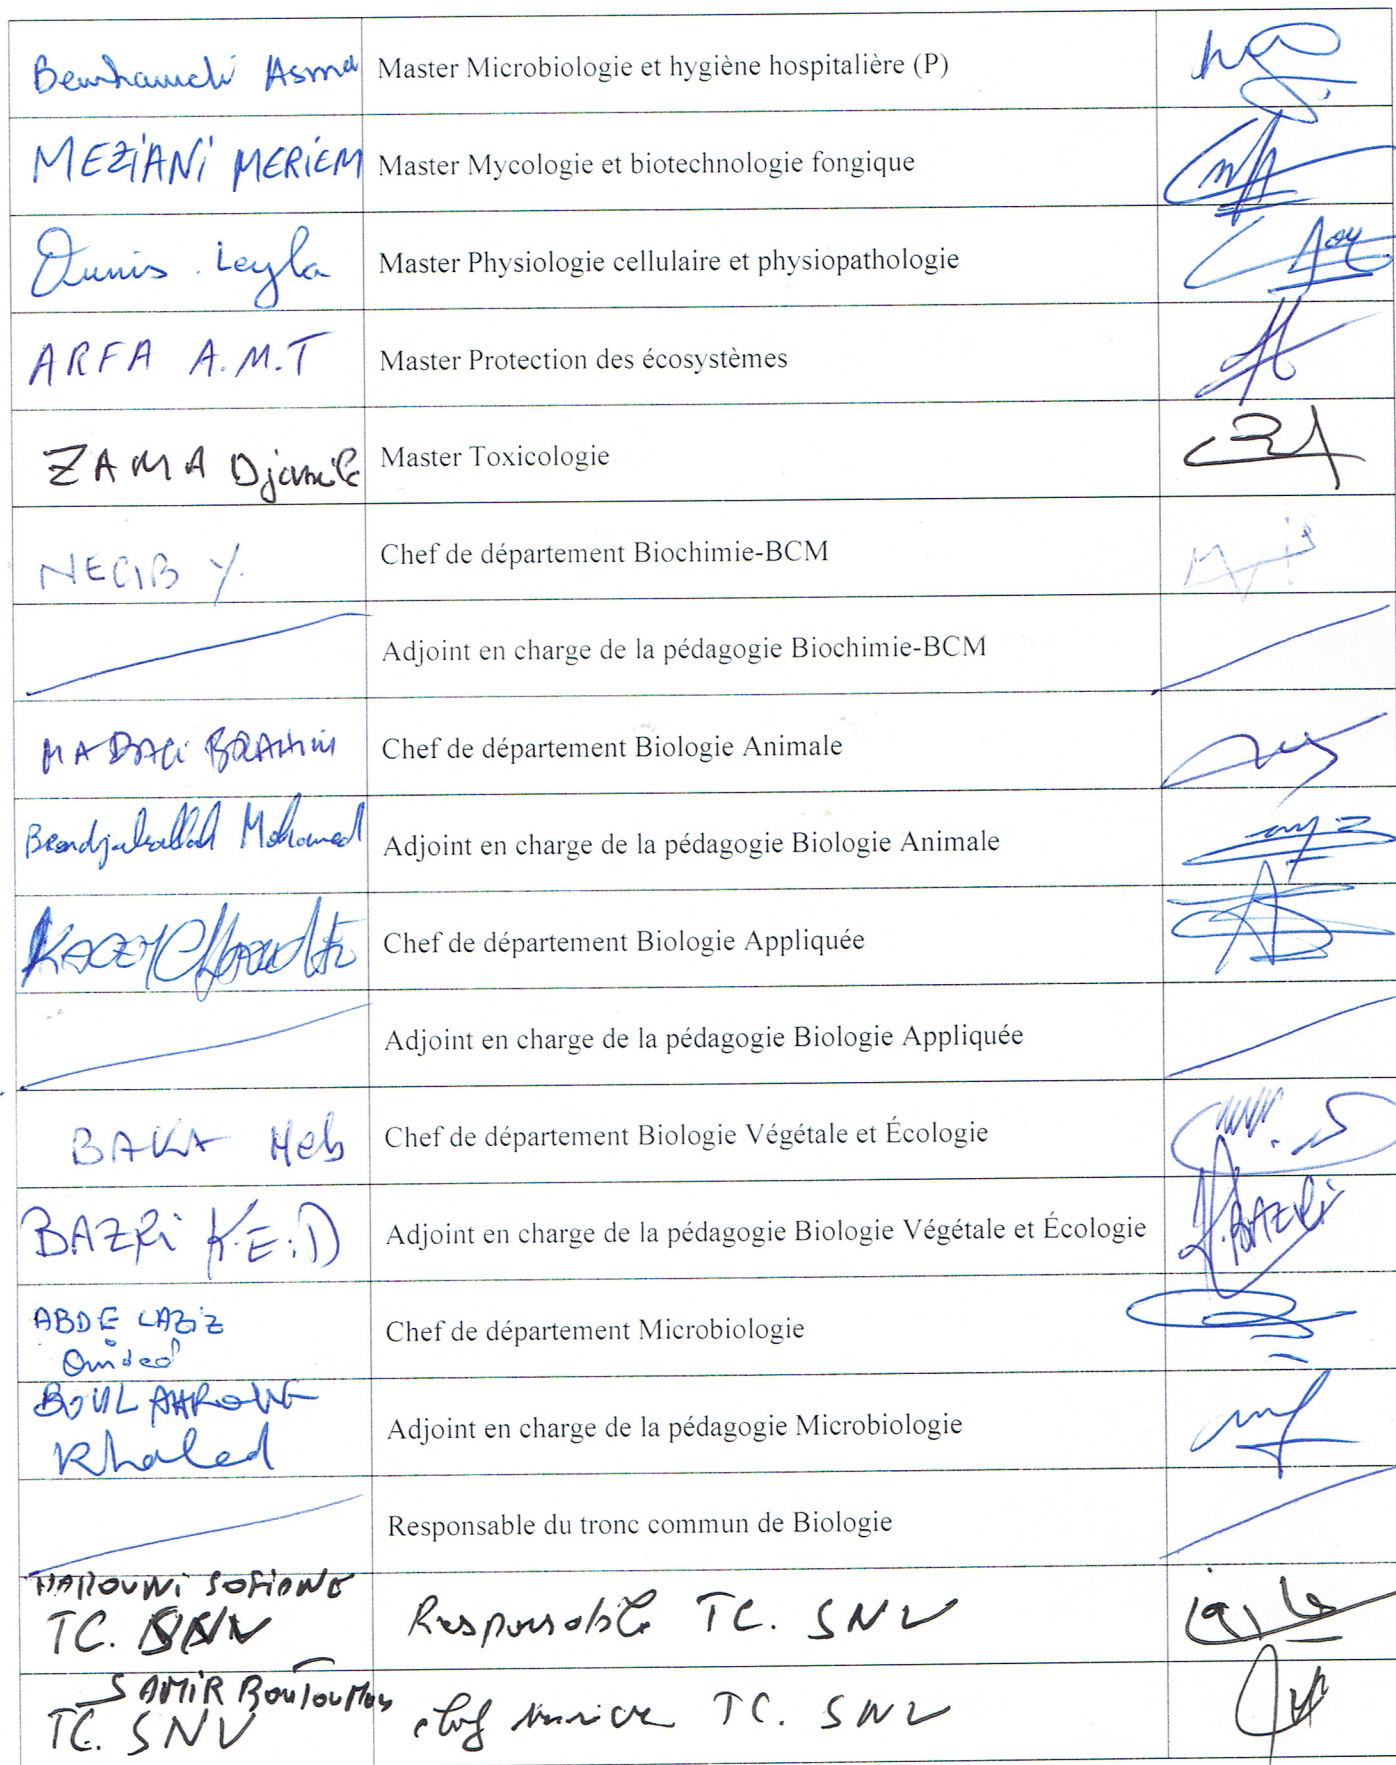 Benhamdi Asma Master Microbiologie et hygiène hospitalière (P)
MEZiANi MERiEM Master Mycologie et biotechnologie fongique
Ounis Leyla Master Physiologie cellulaire et physiopathologie
ARFA A.M.T Master Protection des écosystèmes
ZAMA Djamila Master Toxicologie
NECIB Y. Chef de département Biochimie-BCM
Adjoint en charge de la pédagogie Biochimie-BCM
MADACi BRAHiM Chef de département Biologie Animale
Bendjaballah Mohamed Adjoint en charge de la pédagogie Biologie Animale
Chef de département Biologie Appliquée
Adjoint en charge de la pédagogie Biologie Appliquée
BAKA Meb Chef de département Biologie Végétale et Écologie
BAZRi K.E.D Adjoint en charge de la pédagogie Biologie Végétale et Écologie K.BAZRi
ABDELAZiZ
Ouided
Chef de département Microbiologie
BOULAHROUF
Khaled
Adjoint en charge de la pédagogie Microbiologie
Responsable du tronc commun de Biologie
HAROUNi SOFiANE
TC. SNV Responsable TC. SNV
SAMiR
TC. SNV chef service TC. SNV